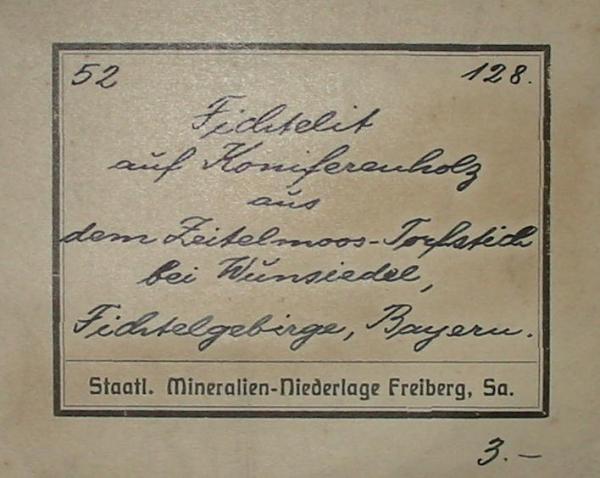 52 128.
Fichtelit
auf Koniferenholz
aus
dem Zeitelmoos-Torfstich
bei Wunsiedel,
Fichtelgebirge, Bayern.
Staatl. Mineralien-Niederlage Freiberg, Sa.
3.-